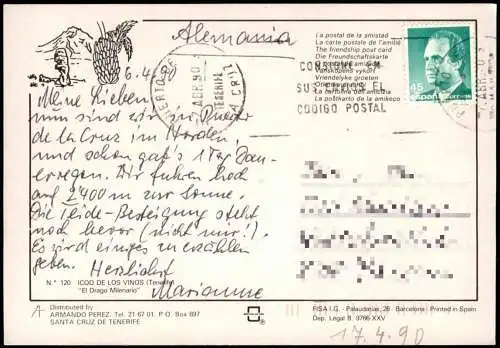 Alemania
6.4.90
Meine Lieben,
nun sind wir in Puerto
de la Cruz im Norden,
und schon gab's 1 Tag Dau-
erregen. Wir fuhren hoch
auf 2400 m zur Sonne.
Die Teide-Besteigung steht
noch bevor (nicht mir!).
Es wird einiges zu erzählen
geben. Herzlichst
Marianne
N.º 120 ICOD DE LOS VINOS (Tenerife)
"El Drago Milenario"
A Distributed by
ARMANDO PEREZ. Tel. 21 67 01 - P.O Box 697
SANTA CRUZ DE TENERIFE
La postal de la amistad
La carte postale de l'amitié
The friendship post card
Die Freundschaftskarte
Vriendelyke groeten
La cartolina dell'amicizia
La postkarto de la amikeco
CONSIGNE EN
SUS ENVIOS EL
CODIGO POSTAL
PUERTO DE LA CRUZ
ABR 90
TENERIFE
45
España
FISA I.G. - Palaudarias, 26 - Barcelona - Printed in Spain
Dep. Legal B. 9786-XXV
17.4.90